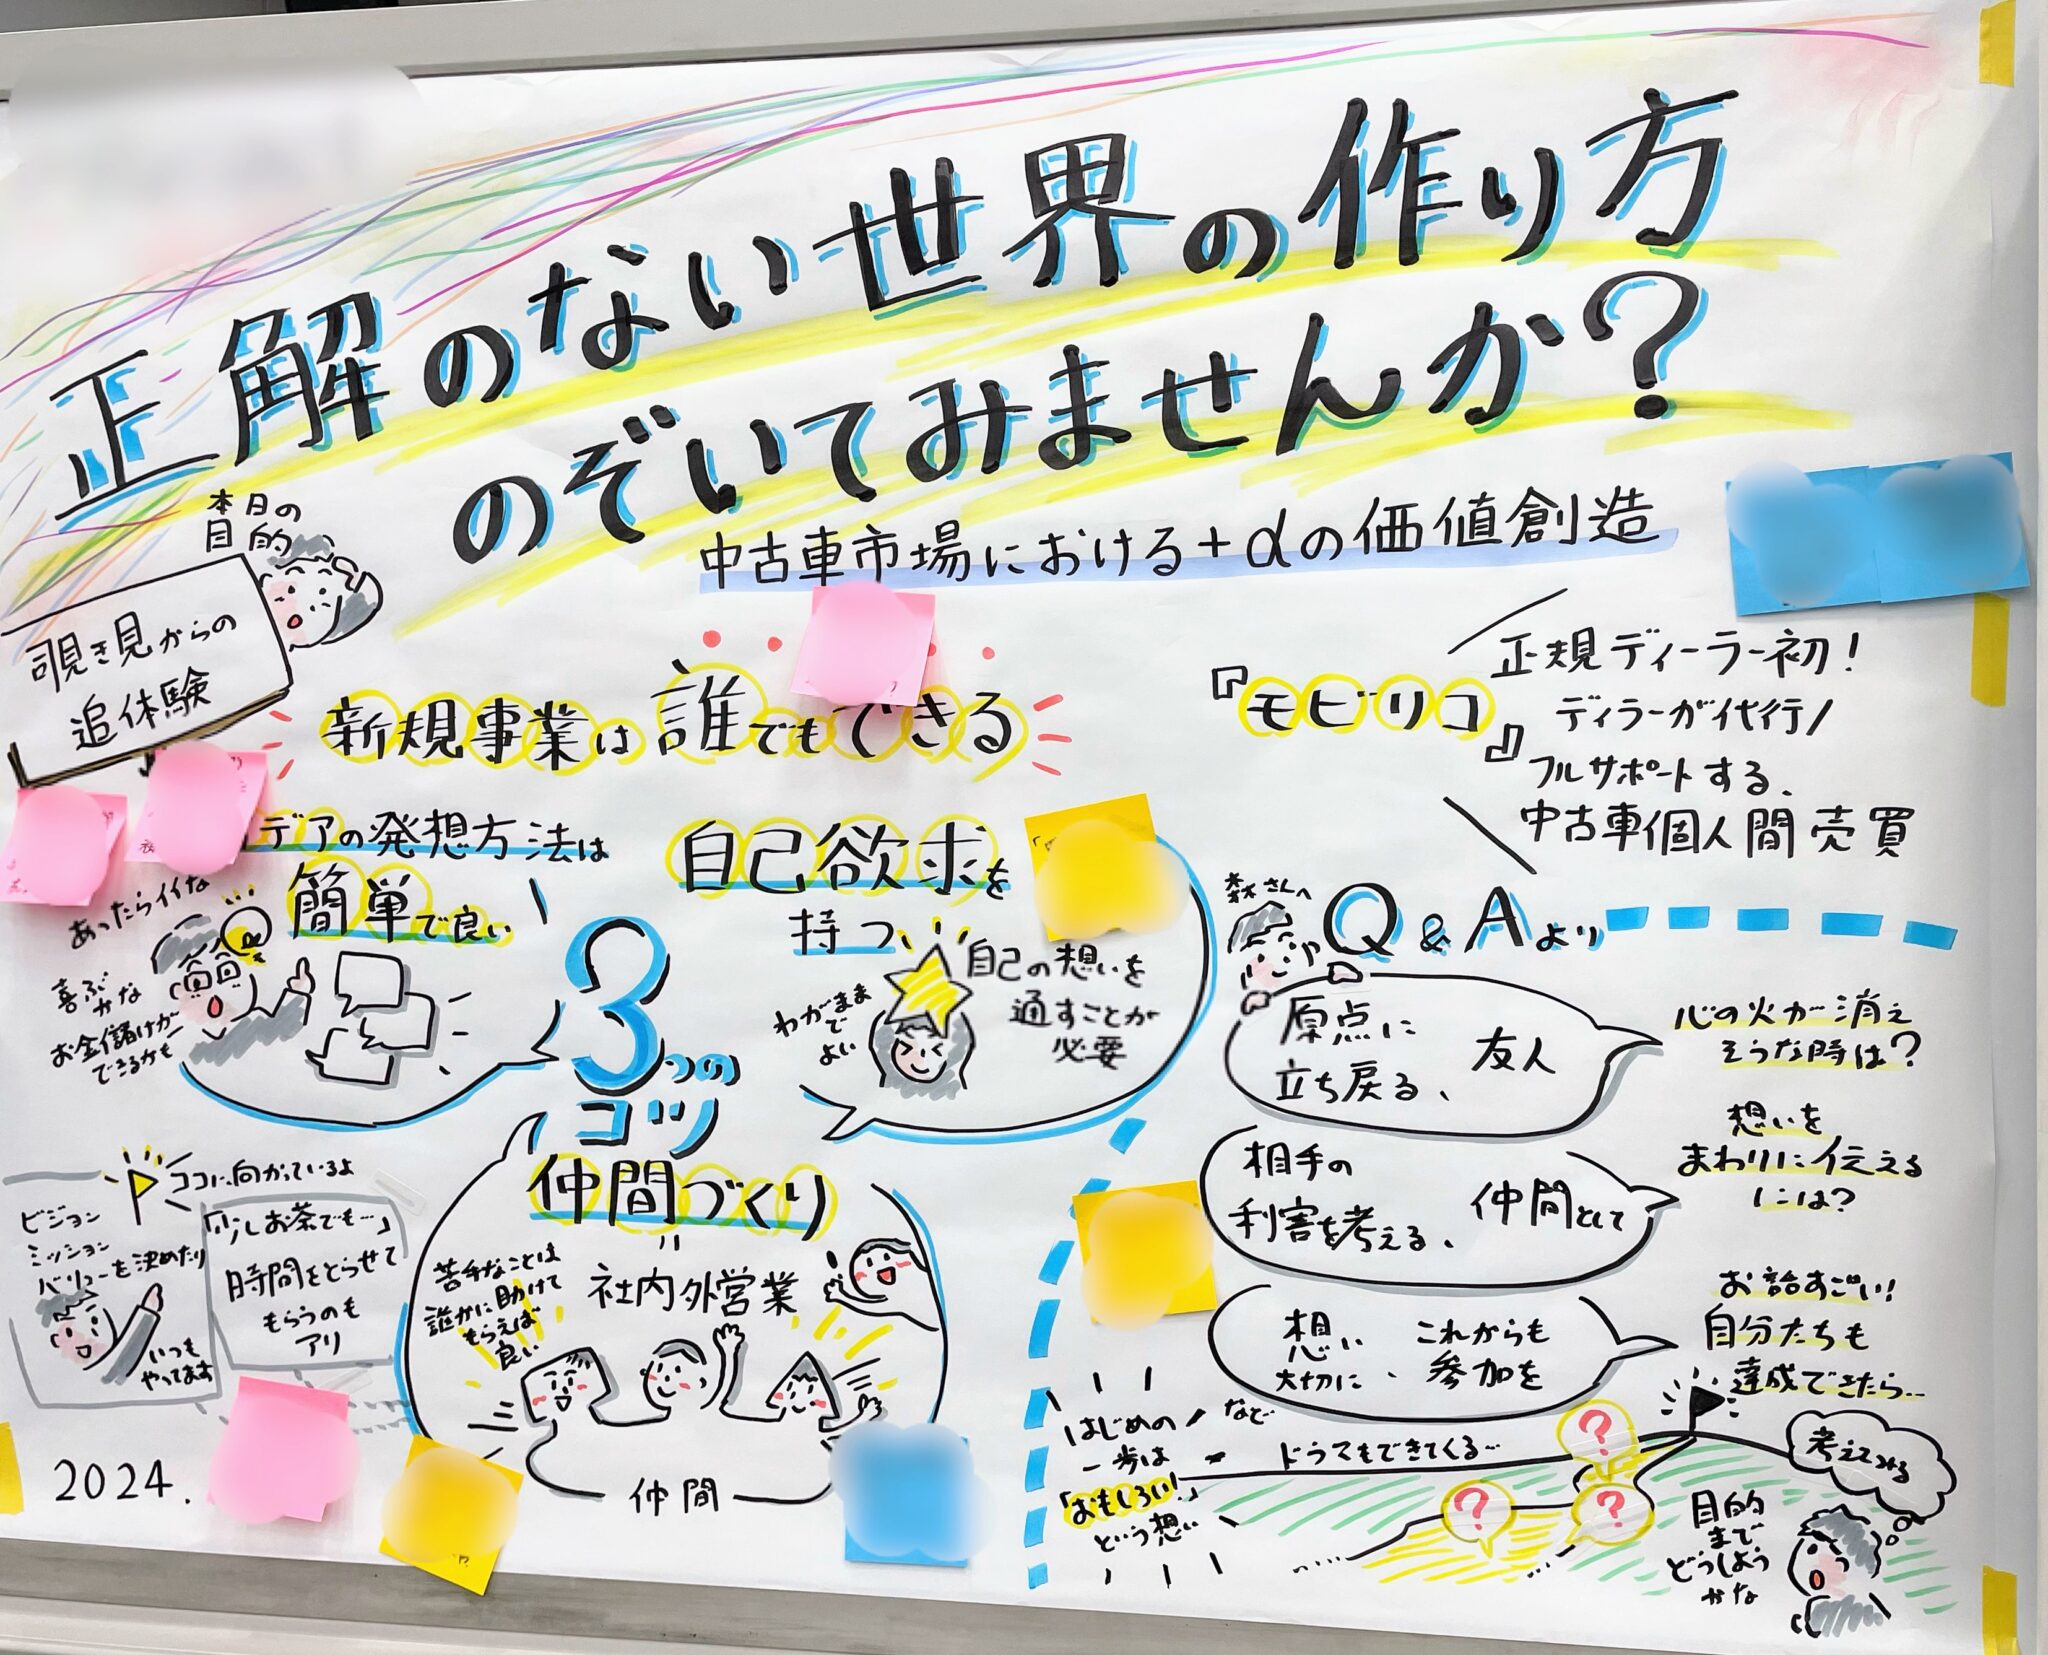 正解のない世界の作り方
のぞいてみませんか?
中古車市場における+αの価値創造
本日の
目的
覗き見からの
追体験
新規事業は誰でもできる
『モビリコ』
正規ディーラー初!
ディラーが代行/
フルサポートする、
中古車個人間売買
デアの発想方法は
簡単で良い
あったらイイな
喜ぶ
かな
お金儲けが
できるかも
3つの
コツ
自己欲求を
持つ
わがまま
で
よい
自己の想いを
通すことが
必要
仲間づくり
=
社内外営業
苦手なことは
誰かに助けて
もらえば
良い
仲間
ココに向かっているよ
ビジョン
ミッション
バリューを決めたり
いつも
やってます
「少しお茶でも…」
時間をとらせて
もらうのも
アリ
2024.
森さんへ
Q&Aより
心の火が消え
そうな時は?
原点に
立ち戻る、
友人
想いを
まわりに伝える
には?
相手の
利害を考える、
仲間として
お話すごい!
自分たちも
達成できたら…
想い
大切に、
これからも
参加を
はじめの
一歩は
「おもしろい!」
という想い
など
ドラマもできてくる…
?
?
?
考えてみる
目的
まで
どうしよう
かな